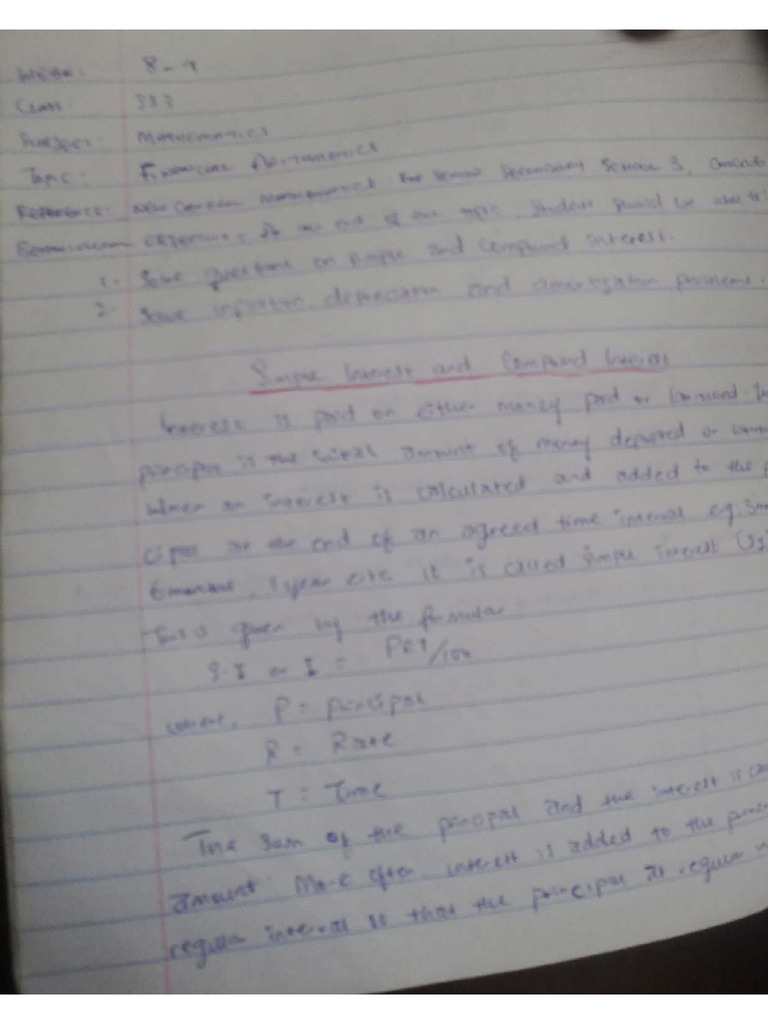 Week: 8-9
Class: SS3
Subject: Mathematics
Topic: Financial Arithmetics
Reference: New General Mathematics for Senior Secondary School 3,
objectives, At the end of the topic, students should be able to
1. Solve questions on simple and compound interest.
2. Solve inflation, depreciation and amortization problems.
Simple Interest and Compound Interest
Interest is paid on either money paid or borrowed.
principal is the initial amount of money deposited or
When an interest is calculated and added to the
cipal at the end of an agreed time interval e.g. 3
6 months, 1 year etc it is called simple interest
given by the formular
S.I or I = PRT/100
where, P = principal
R = Rate
T = Time
The sum of the principal and the interest is
amount. More often interest is added to the
regular interval so that the principal at regular